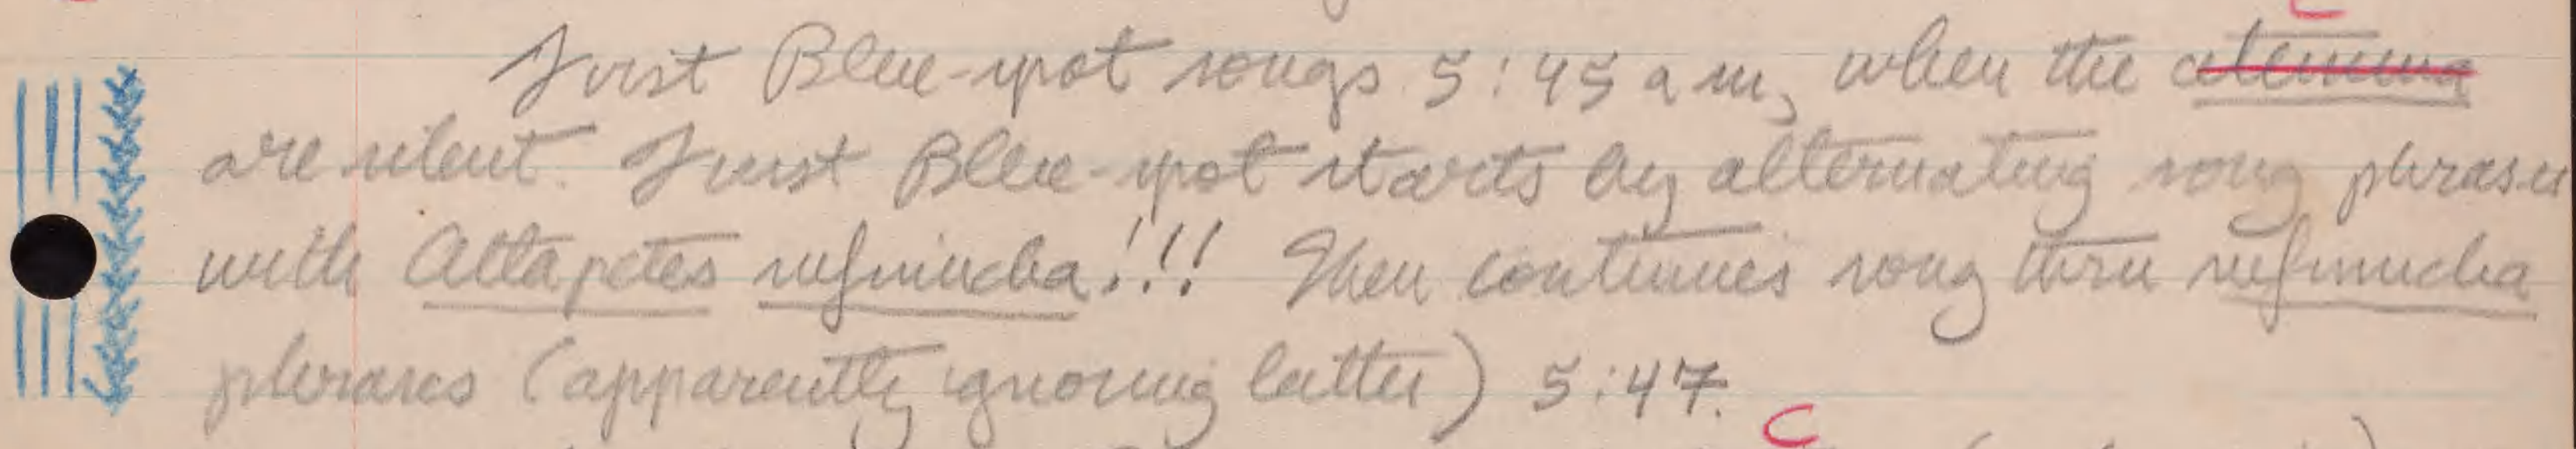 First Blue-spot songs 5:45 am, when the atemma
are silent. First Blue-spot starts by alternating song phrases
with Atlapetes rufinucha!!! Then continues song thru rufinucha
phrases (apparently ignoring latter) 5:47.